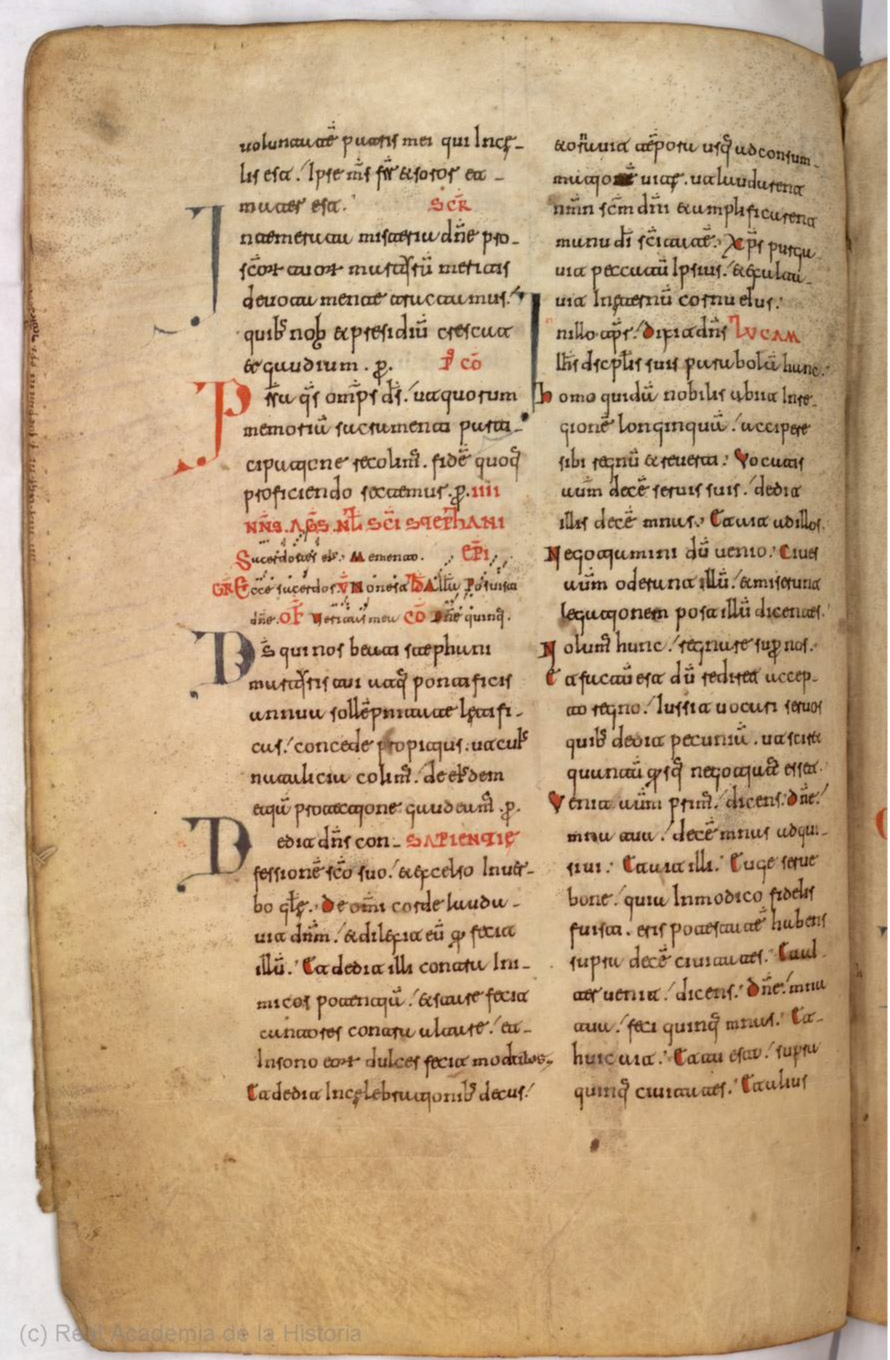 uoluntatē patris mei qui Incę-
lis est. Ipse ms̄ fr̄ &soror et
mater est. SCR̄
devota mente tractamus.
quibꝰ nob & presidiū crescat
& gaudium. ꝓ. P̄ CŌ
Pr̄sta qs̄ omp̄s ds̄. ut quorum
memoriā sacramenti parti-
cipatione recolim̄. fidē quoq̄
proficiendo sectemus. ꝓ. IIII
NN̄S. AG̅S. NT̄L SC̄I STEPHANI
Sacerdotes eiꝰ. Memento. EP̄I
GR̄ Ecce sacerdos V̄ Non est ALLA Posuisti
dn̄e. OF̄ Ueritas mea CŌ Dn̄e quinq̄.
Ds̄ qui nos beati stephani
martyris tui atq̄ pontificis
annua sollēpnitate lętifi-
cas. concede propitius. ut cuiꝰ
natalicia colim̄. de eiꝰdem
etiā protectione gaudeam̄. ꝓ.
Dedit dn̄s con- SAPIENTIĘ
fessionē scō suo. & excelso In uer-
bo glę. De om̄i corde lauda-
uit dn̄m. & dilexit eū qi fecit
illū. Et dedit illi contra Ini-
micos potentiā. & stare fecit
cantores contra altare. et
In sono eorum dulces fecit modulos.
Et dedit In cęlebrationibꝰ decus.
& ornauit tēpora usq̄ ad consum-
mationē uitę. ut laudarent
nm̄n scm̄ dn̄i & amplificarent
mane dī scītatē. Xp̄s purga-
uit peccata Ipsius. & exalta-
uit In eternū cornu eius.
In illo tp̄r. Dixit dn̄s LUCAM
Ihs̄ dscplis suis parabolā hanc.
Homo quidā nobilis abiit In re-
gionē longinquā. accipere
sibi regnū & reuerti. Vocatis
autm̄ decē seruis suis. dedit
illis decē mnas. Et ait ad illos.
Negotiamini dū uenio. Ciues
autm̄ oderant illū. & miserunt
legationem post illū dicentes.
Nolum̄ hunc regnare supr̄ nos.
Et factū est dū rediret accep-
to regno. Iussit uocari seruos
quibꝰ dedit pecuniā. ut sciret
quantū qisq̄ negotiatꝰ esset.
Venit autm̄ prim̄. dicens. Dn̄e.
mna tua. decē mnas adqui-
siui. Et ait illi. Euge serue
bone. quia In modico fidelis
fuisti. eris potestatē habens
supra decē ciuitates. Et al-
ter uenit. dicens. Dn̄e. mna
tua. feci quinq̄ mnas. Et
huic ait. Et tu esto. supra
quinq̄ ciuitates. Et alius
(c) Real Academia de la Historia